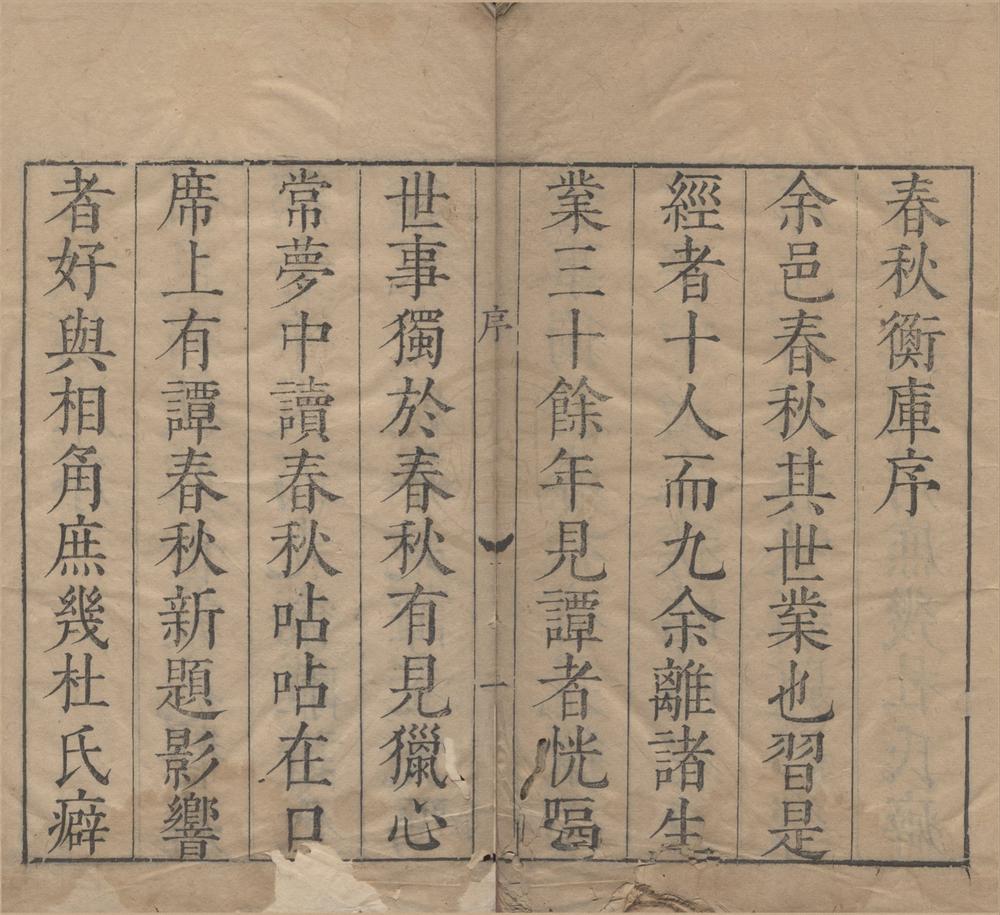 春秋衡庫序
余邑春秋其世業也習是
經者十人而九余離諸生
業三十餘年見譚者恍嘔
世事獨於春秋有見獵心
常夢中讀春秋呫呫在口
席上有譚春秋新題影響
者好與相角庶幾杜氏癖
序
一